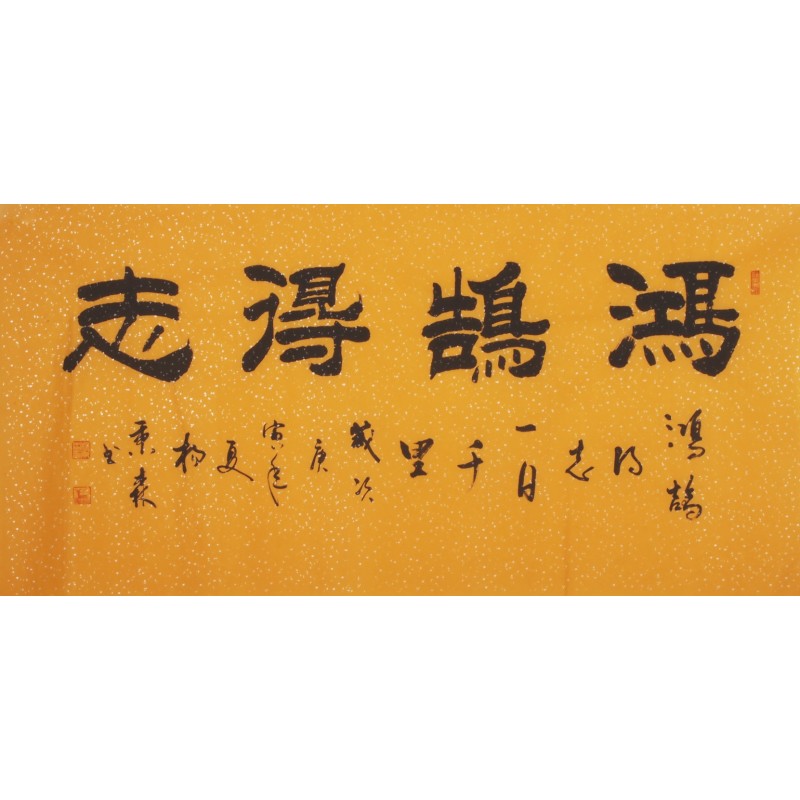 鴻鵠得志
鴻鵠得志一日千里歲次庚寅年夏楊秉森書